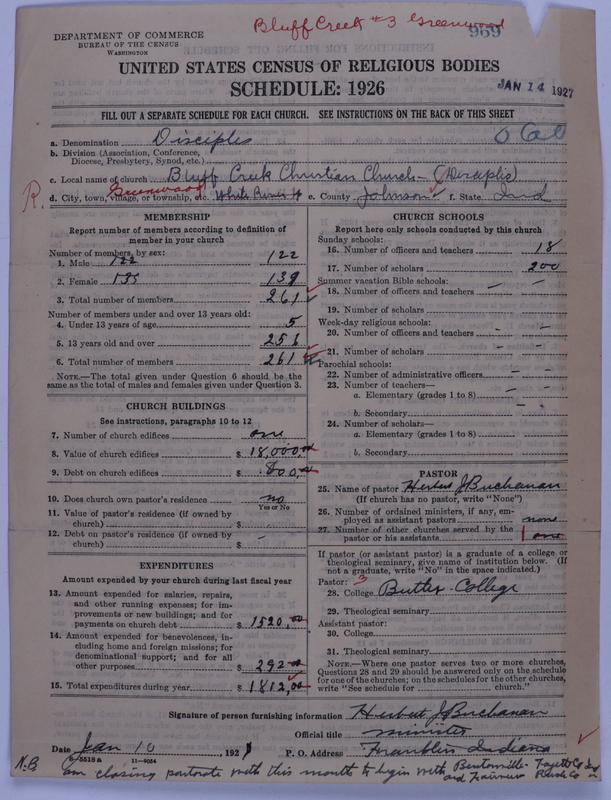 Bluff Creek #3 Greenwood
969
DEPARTMENT OF COMMERCE
BUREAU OF THE CENSUS
WASHINGTON
UNITED STATES CENSUS OF RELIGIOUS BODIES
SCHEDULE: 1926
JAN 14 1927
FILL OUT A SEPARATE SCHEDULE FOR EACH CHURCH. SEE INSTRUCTIONS ON THE BACK OF THIS SHEET
a. Denomination Disciples
b. Division (Association, Conference, Diocese, Presbytery, Synod, etc.)
c. Local name of church Bluff Creek Christian Church - (Disciple)
R. Greenwood
d. City, town, village, or township, etc. White River Tp e. County Johnson f. State Ind
MEMBERSHIP
Report number of members according to definition of member in your church
Number of members, by sex:
1. Male 122 122
2. Female 139
3. Total number of members 261
Number of members under and over 13 years old:
4. Under 13 years of age 5
5. 13 years old and over 256
6. Total number of members 261
NOTE.—The total given under Question 6 should be the same as the total of males and females given under Question 3.
CHURCH BUILDINGS
See instructions, paragraphs 10 to 12
7. Number of church edifices one
8. Value of church edifices $ 18,000.00
9. Debt on church edifices $
10. Does church own pastor's residence no
Yes or No
11. Value of pastor's residence (if owned by church) $
12. Debt on pastor's residence (if owned by church) $ -
EXPENDITURES
Amount expended by your church during last fiscal year
13. Amount expended for salaries, repairs, and other running expenses; for improvements or new buildings; and for payments on church debt $ 1520.00
14. Amount expended for benevolences, including home and foreign missions; for denominational support; and for all other purposes $ 292.00
15. Total expenditures during year $ 1812.00
CHURCH SCHOOLS
Report here only schools conducted by this church
Sunday schools:
16. Number of officers and teachers 18
17. Number of scholars 200
Summer vacation Bible schools:
18. Number of officers and teachers - -
19. Number of scholars
Week-day religious schools:
20. Number of officers and teachers - -
21. Number of scholars - -
Parochial schools:
22. Number of administrative officers - -
23. Number of teachers—
a. Elementary (grades 1 to 8) -
b. Secondary - -
24. Number of scholars—
a. Elementary (grades 1 to 8) -
b. Secondary
PASTOR
25. Name of pastor Herbert J Buchanan
(If church has no pastor, write "None")
26. Number of ordained ministers, if any, employed as assistant pastors none
27. Number of other churches served by the pastor or his assistants 1 one
If pastor (or assistant pastor) is a graduate of a college or theological seminary, give name of institution below. (If not a graduate, write "No" in the space indicated.)
Pastor: 3
28. College Butler College
29. Theological seminary
Assistant pastor:
30. College
31. Theological seminary
NOTE.—Where one pastor serves two or more churches, Questions 28 and 29 should be answered only on the schedule for one of the churches; on the schedules for the other churches, write "See schedule for church."
Signature of person furnishing information Herbert J Buchanan
Official title minister
Date Jan 10, 1927 P. O. Address Franklin Indiana
8-5518 a 11-9054
N.B. am closing pastorate with this month to begin with Bentonville - Fayette Co Ind
and Fairview Rush Co